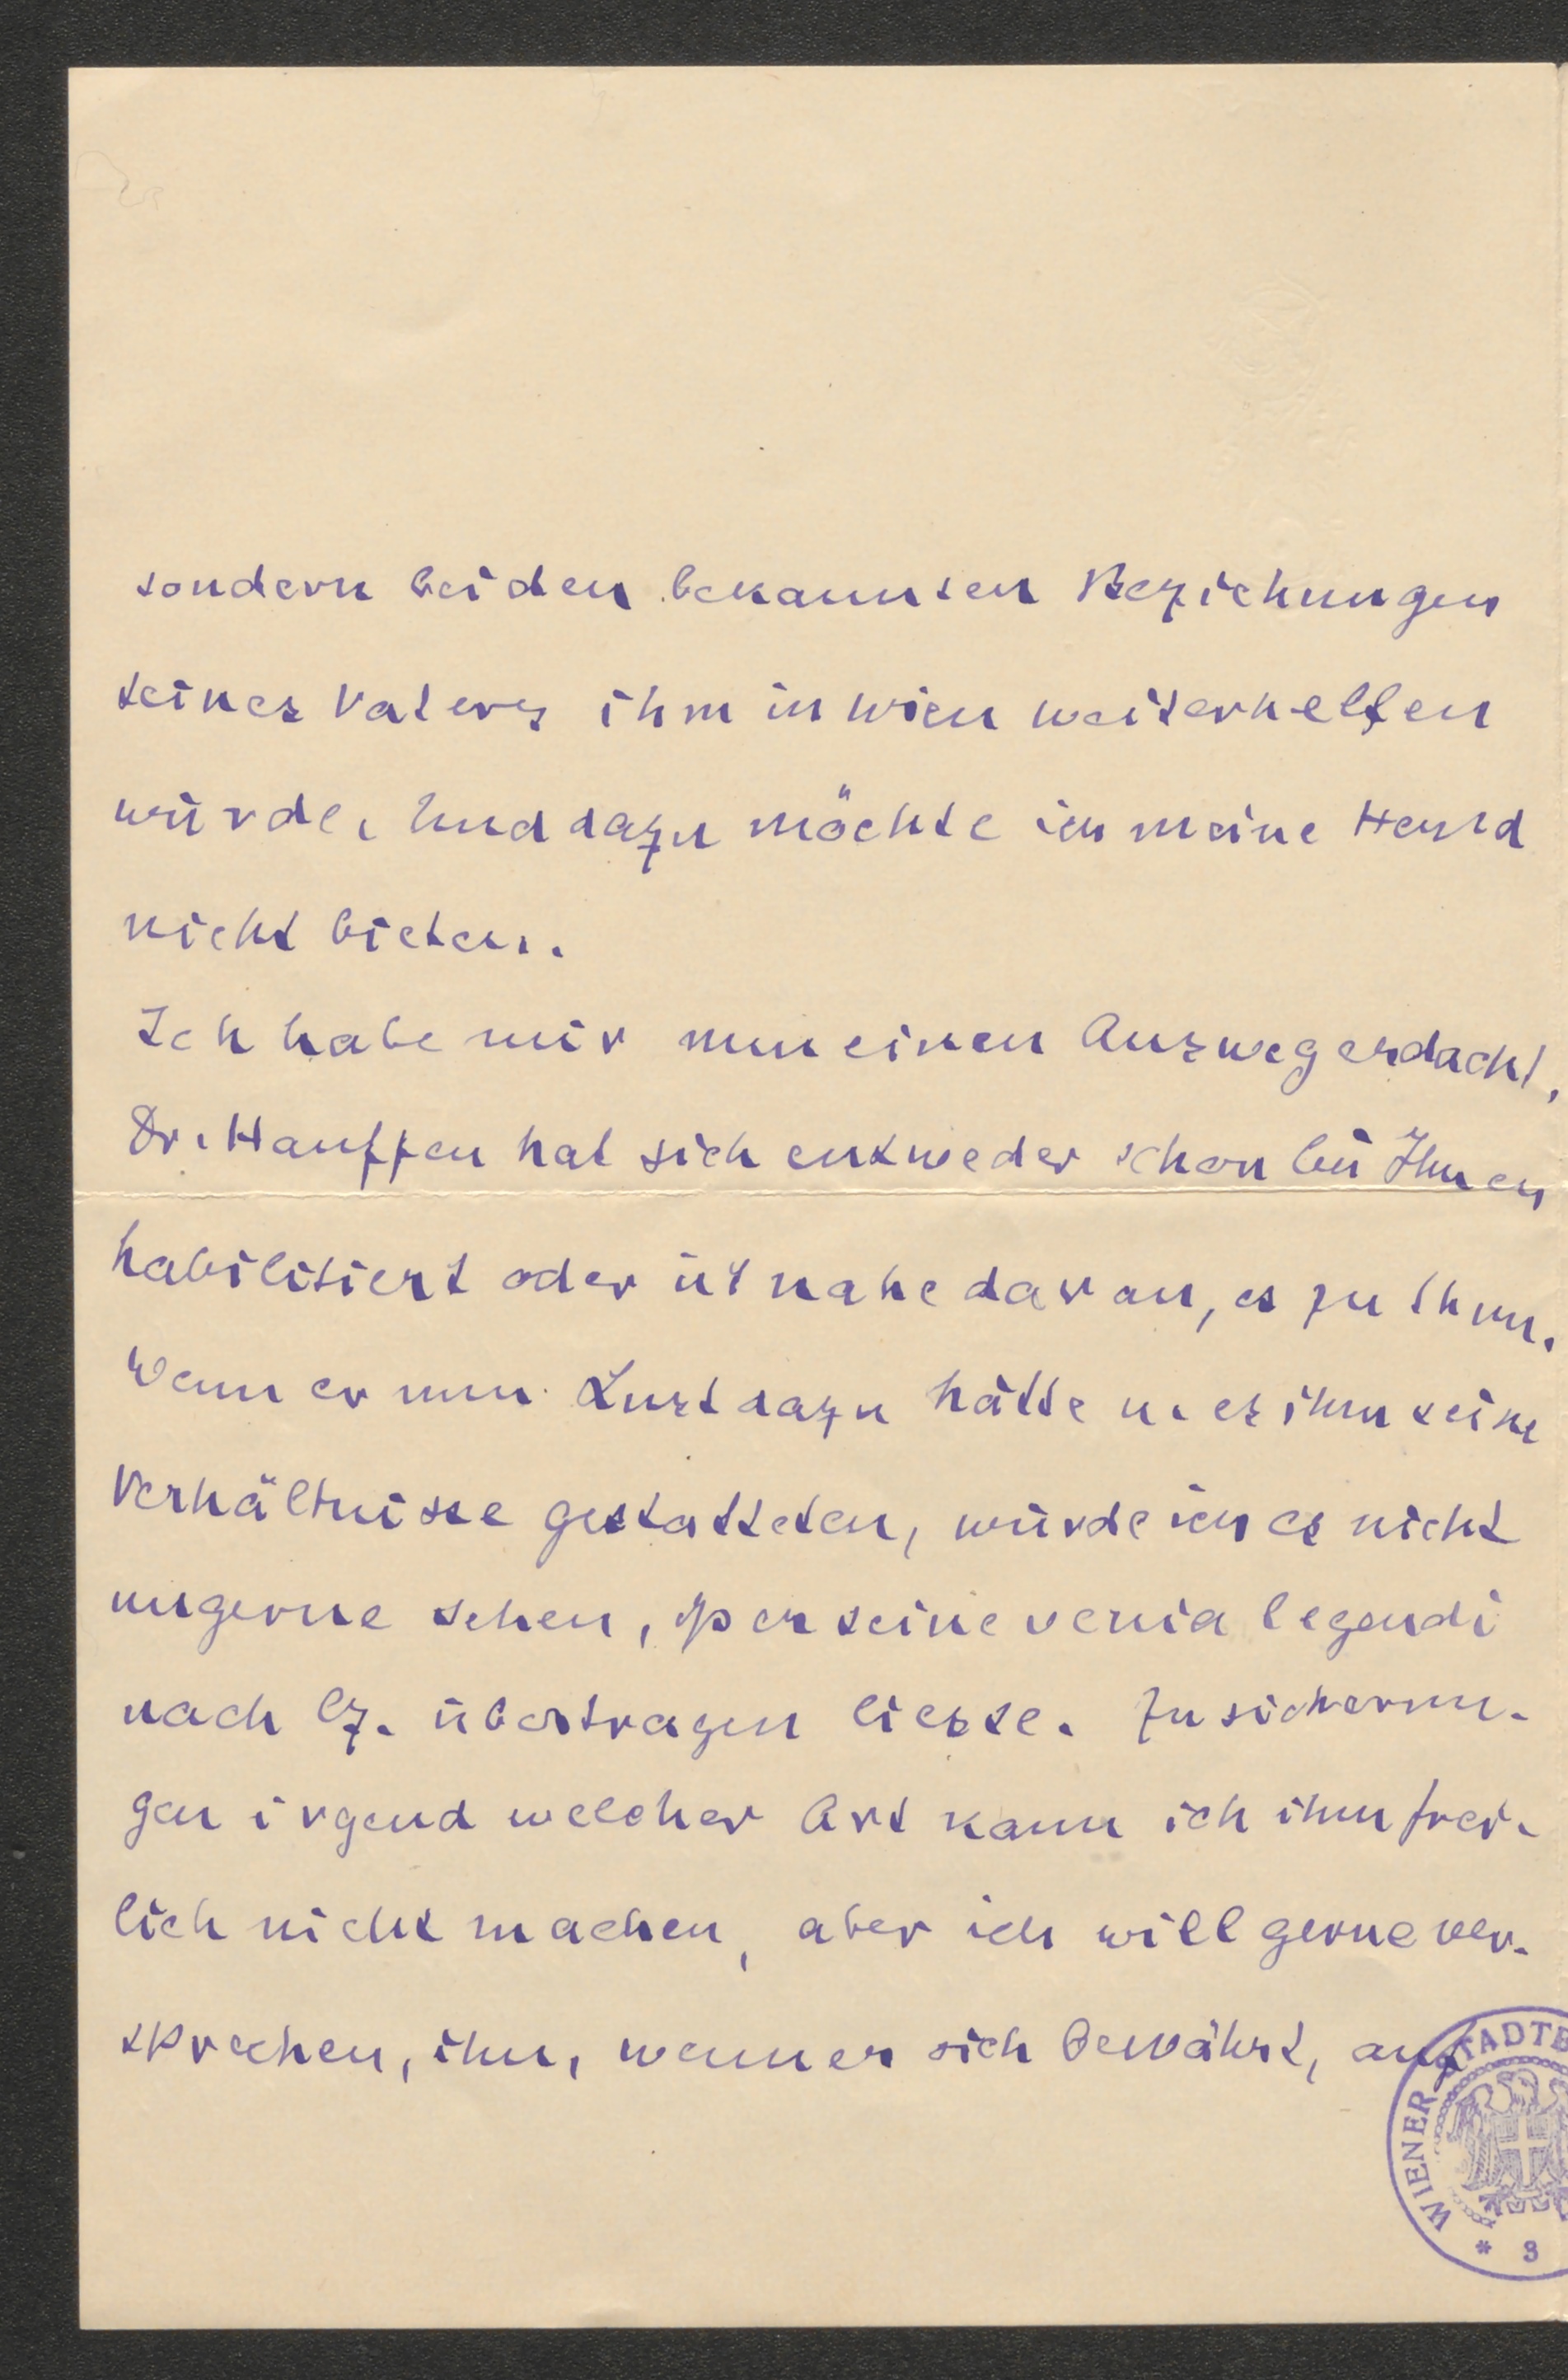 sondern bei den bekannten Beziehungen
seines Vaters ihm in Wien weiterhelfen
würde. Und dazu möchte ich meine Hand
nicht bieten.
Ich habe mir nun einen Ausweg erdacht.
Dr. Hauffen hat sich entweder schon bei Ihnen
habilitiert oder ist nahe daran, es zu thun.
Wenn er nun Lust dazu hätte u. es ihm seine
Verhältnisse gestatteten, würde ich es nicht
ungerne sehen, dß er seine venia legendi
nach Cz. übertragen liesse. Zusicherun-
gen irgend welcher Art kann ich ihm frei-
lich nicht machen, aber ich will gerne ver-
sprechen, ihn, wenn er sich bewährt, auf
WIENER STADTB
* 3